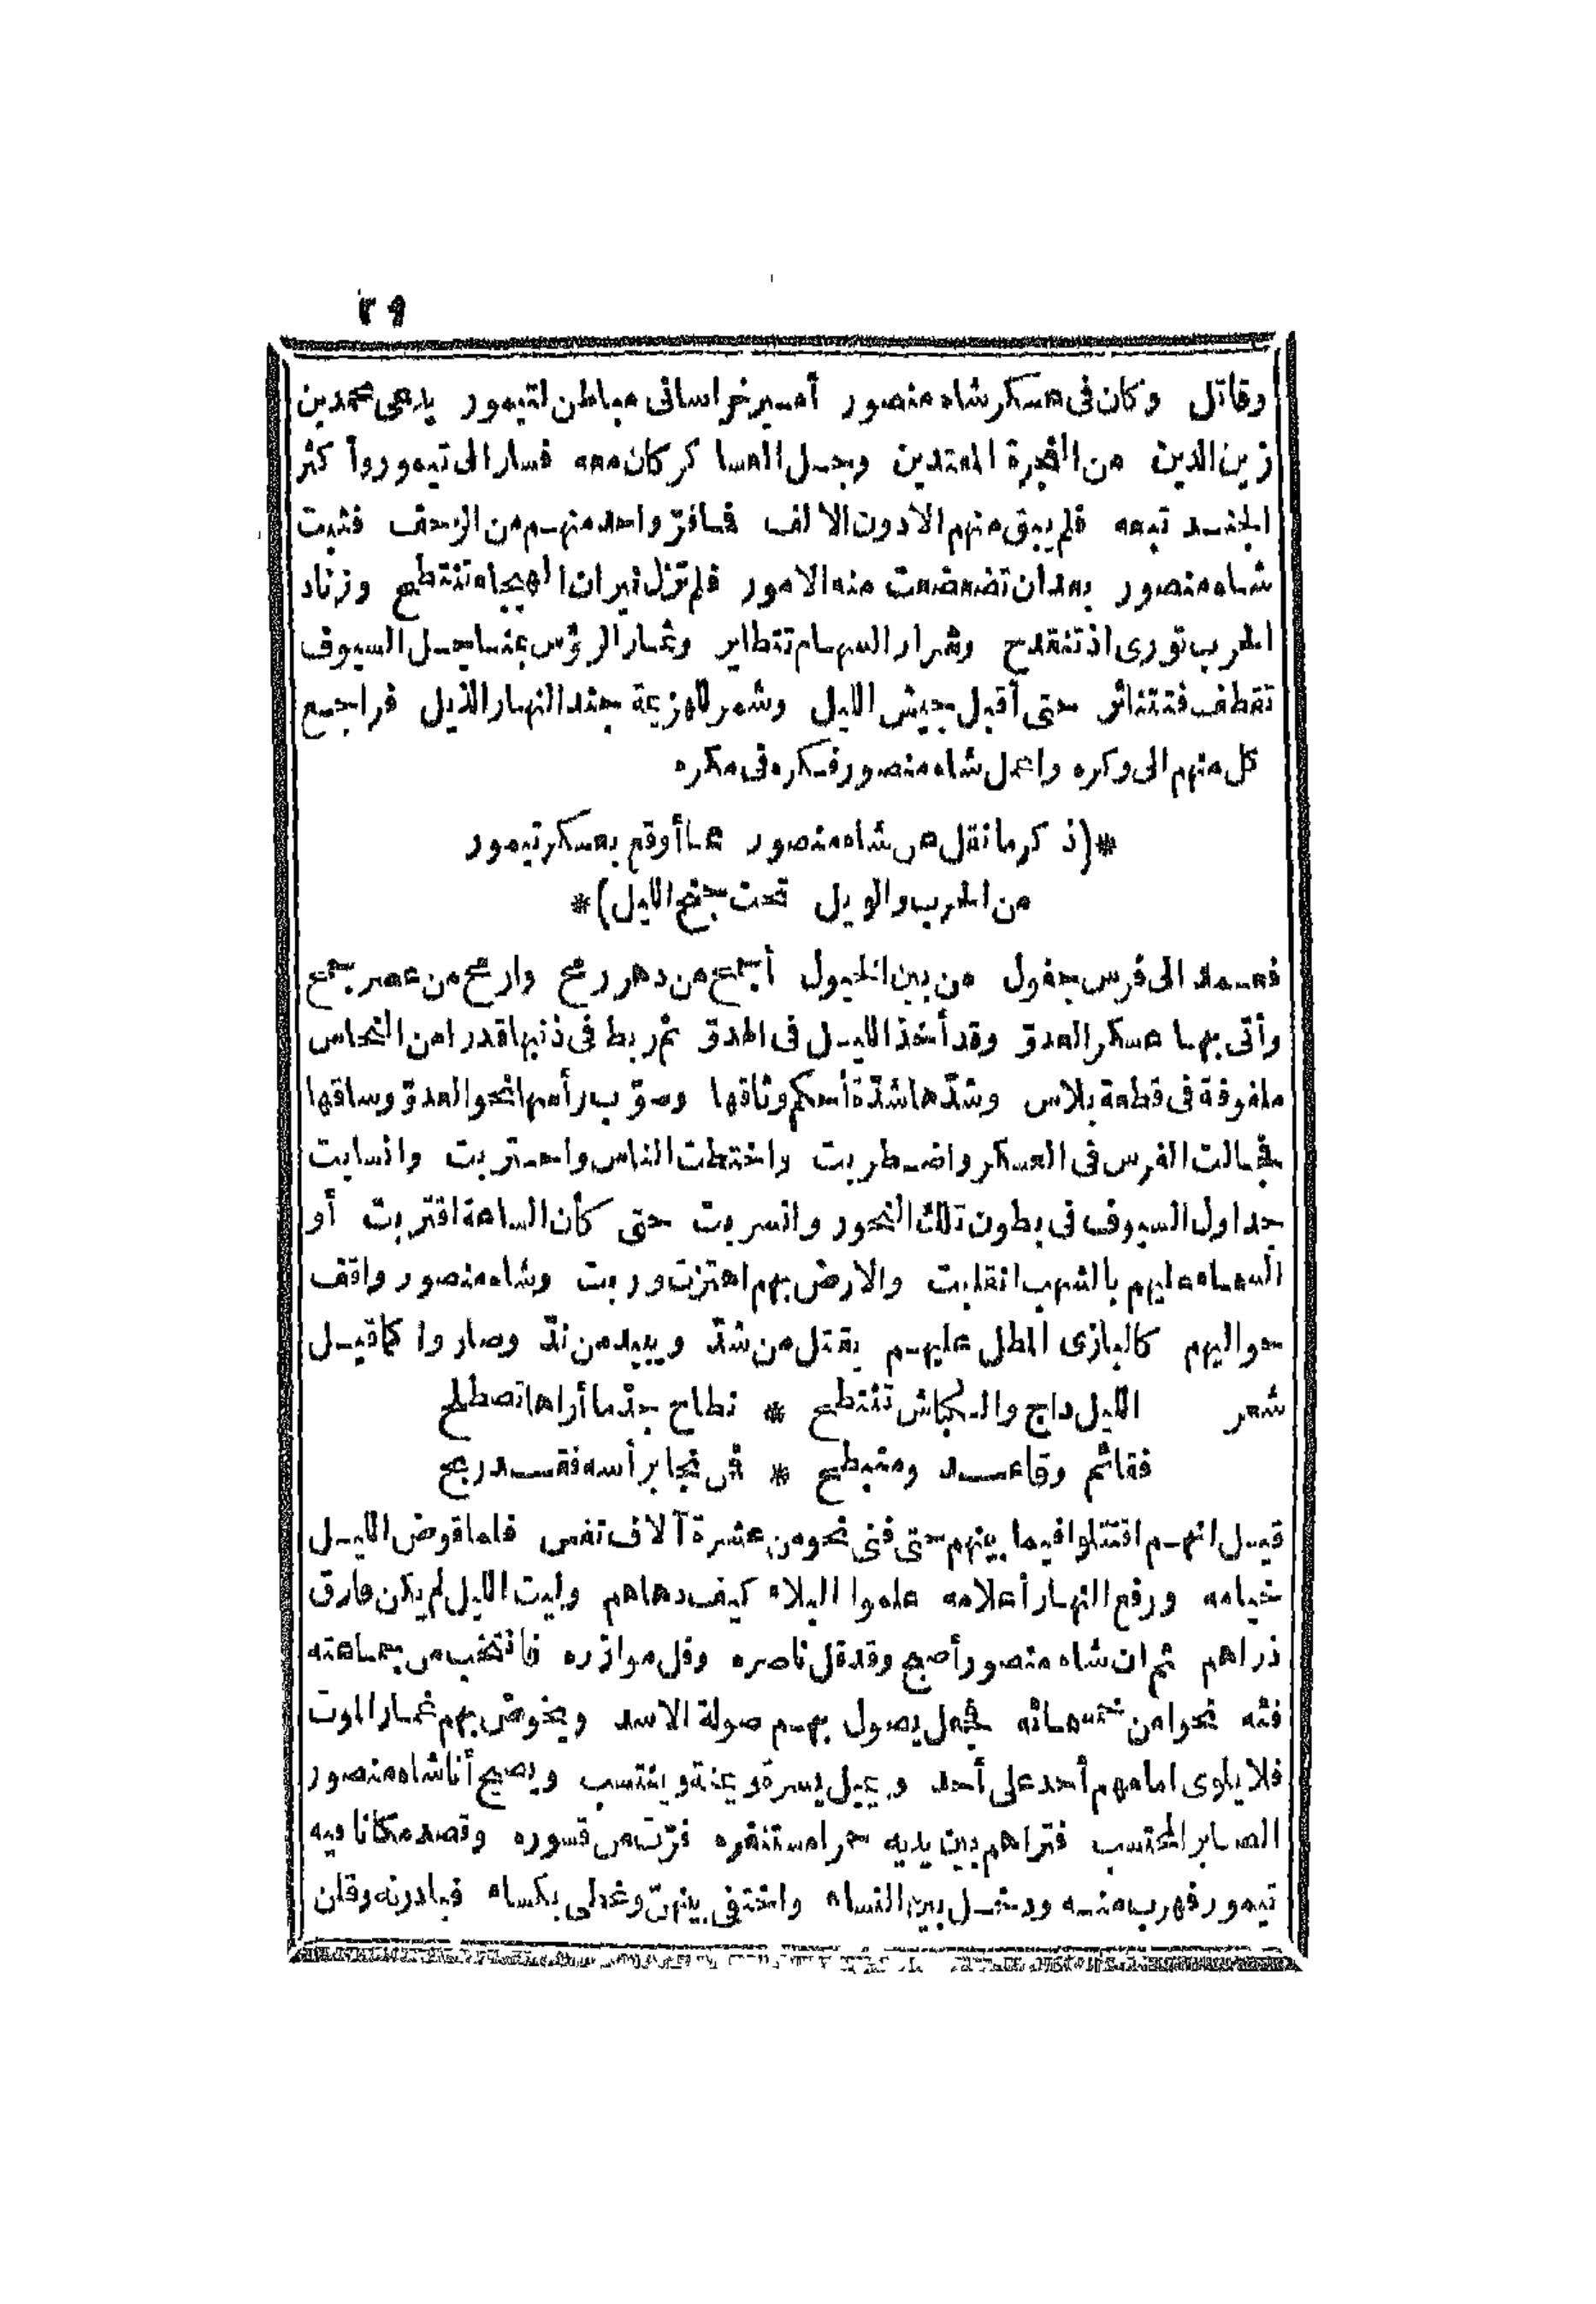 ٢٩
وقاتل وكان في عسكر شاه منصور أمير خراساني مباطن لتيمور يدعى محمد بن
زين الدين من الفجرة المعتدين وجل العساكر كان معه فسار الى تيمور وأكثر
الجند تبعه فلم يبق منهم الا دون الالف فما فرّ واحد منهم من الزحف فثبت
شاه منصور بعد ان تضعضعت منه الامور فلم تزل نيران الهيجاء تنتطح وزناد
الحرب تورى اذ تنقدح وشرار السهام تتطاير وثمار الرؤس بمناجل السيوف
تقطف فتتناثر حتى أقبل جيش الليل وشمر للهزيمة جند النهار الذيل فراجع
كل منهم الى وكره واعمل شاه منصور فكره فى مكره
*(ذكر ما نقل عن شاه منصور مما أوقع بعسكر تيمور
من الحرب والويل تحت جنح الليل)*
فعمد الى فرس جفول من بين الخيول أجمح من دهر رمح وارمح من عصر جمح
وأتى بها عسكر العدوّ وقد أخذ الليل فى الهدوّ ثم ربط فى ذنبها قدرا من النحاس
ملفوفة فى قطعة بلاس وشدّها شدّة أحكم وثاقها وصوّب رأسها نحو العدوّ وساقها
فجالت الفرس فى العسكر واضطربت واختطت الناس واحتربت وانسابت
جداول السيوف فى بطون تلك النحور وانسربت حتى كأن الساعة اقتربت أو
السماء عليهم بالشهب انقلبت والارض بهم اهتزت وربت وشاه منصور واقف
حواليهم كالبازى المطل عليهم يقتل من شذّ ويبيد من ندّ وصاروا كما قيل
شعر الليل داج والكباش تنتطح * نطاح جدّ ما أراها تصطلح
فقائم وقاعد ومنبطح * فمن نجا برأسه فقد ربح
قيل انهم اقتتلوا فيما بينهم حتى فنى نحو من عشرة آلاف نفس فلما قوض الليل
خيامه ورفع النهار أعلامه علموا البلاء كيف دهاهم وليت الليل لم يكن فارق
ذراهم ثم ان شاه منصور أصبح وقد قل ناصره وفل موازره فانتخب من جماعته
فئه نحوا من خمسمائه فجعل يصول بهم صولة الاسد ويخوض بهم غمار الموت
فلا يلوى امامهم أحد على أحد ويميل يسرة ويمنة وينتسب ويصيح أنا شاه منصور
الصابر المحتسب فتراهم بين يديه حمر مستنفره فرّت من قسوره وقصد مكانا فيه
تيمور فهرب منه ودخل بين النساء واختفى بينهنّ وغطى بكساء فبادرنه وقلن